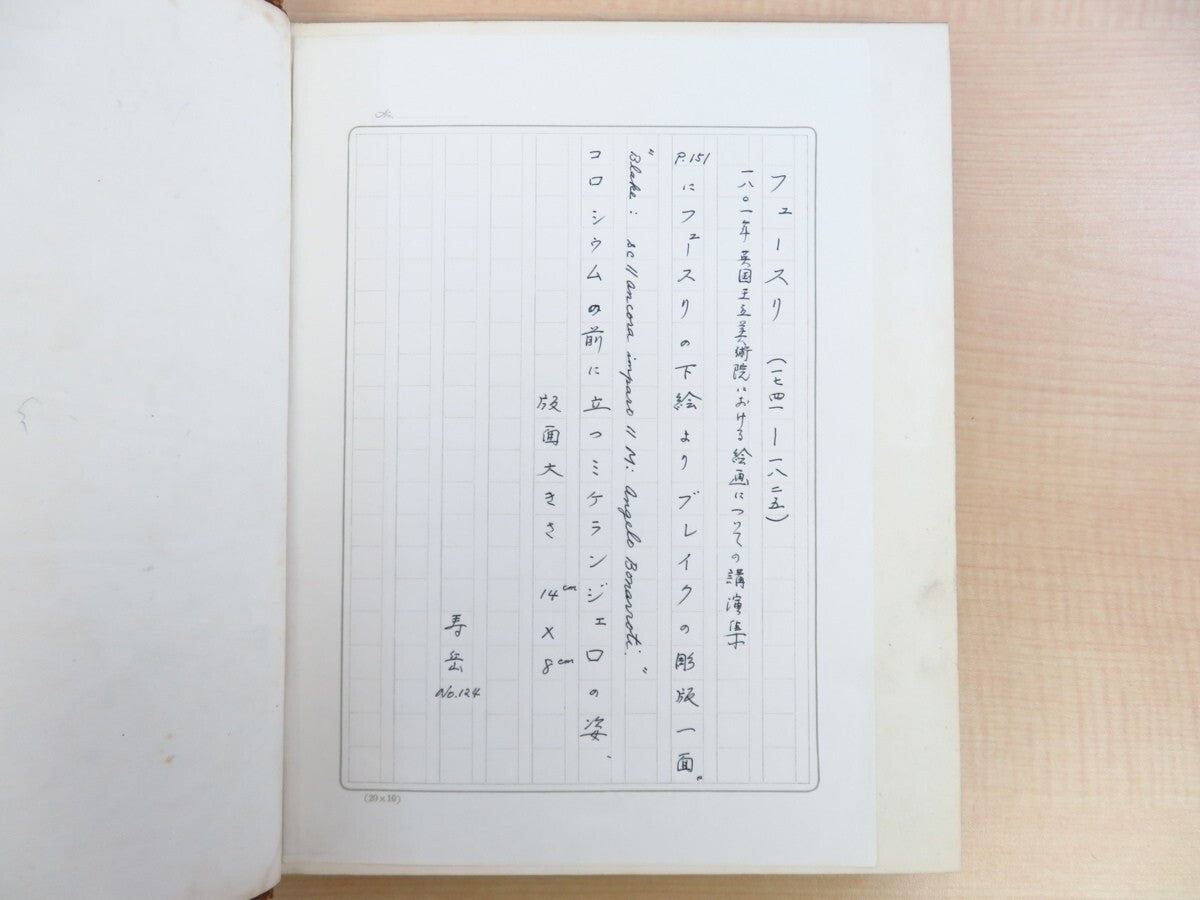 No.
フュースリ (一七四一―一八二五)
一八〇一年英国王立美術院における絵画についての講演集
P.151にフュースリの下絵よりブレイクの彫版一面。
"Blake: sc // ancora imparo // M: Angelo Bonarroti."
コロシウムの前に立つミケランジェロの姿、
版面大きさ 14cm × 8cm
寿岳
No.124
(20×10)